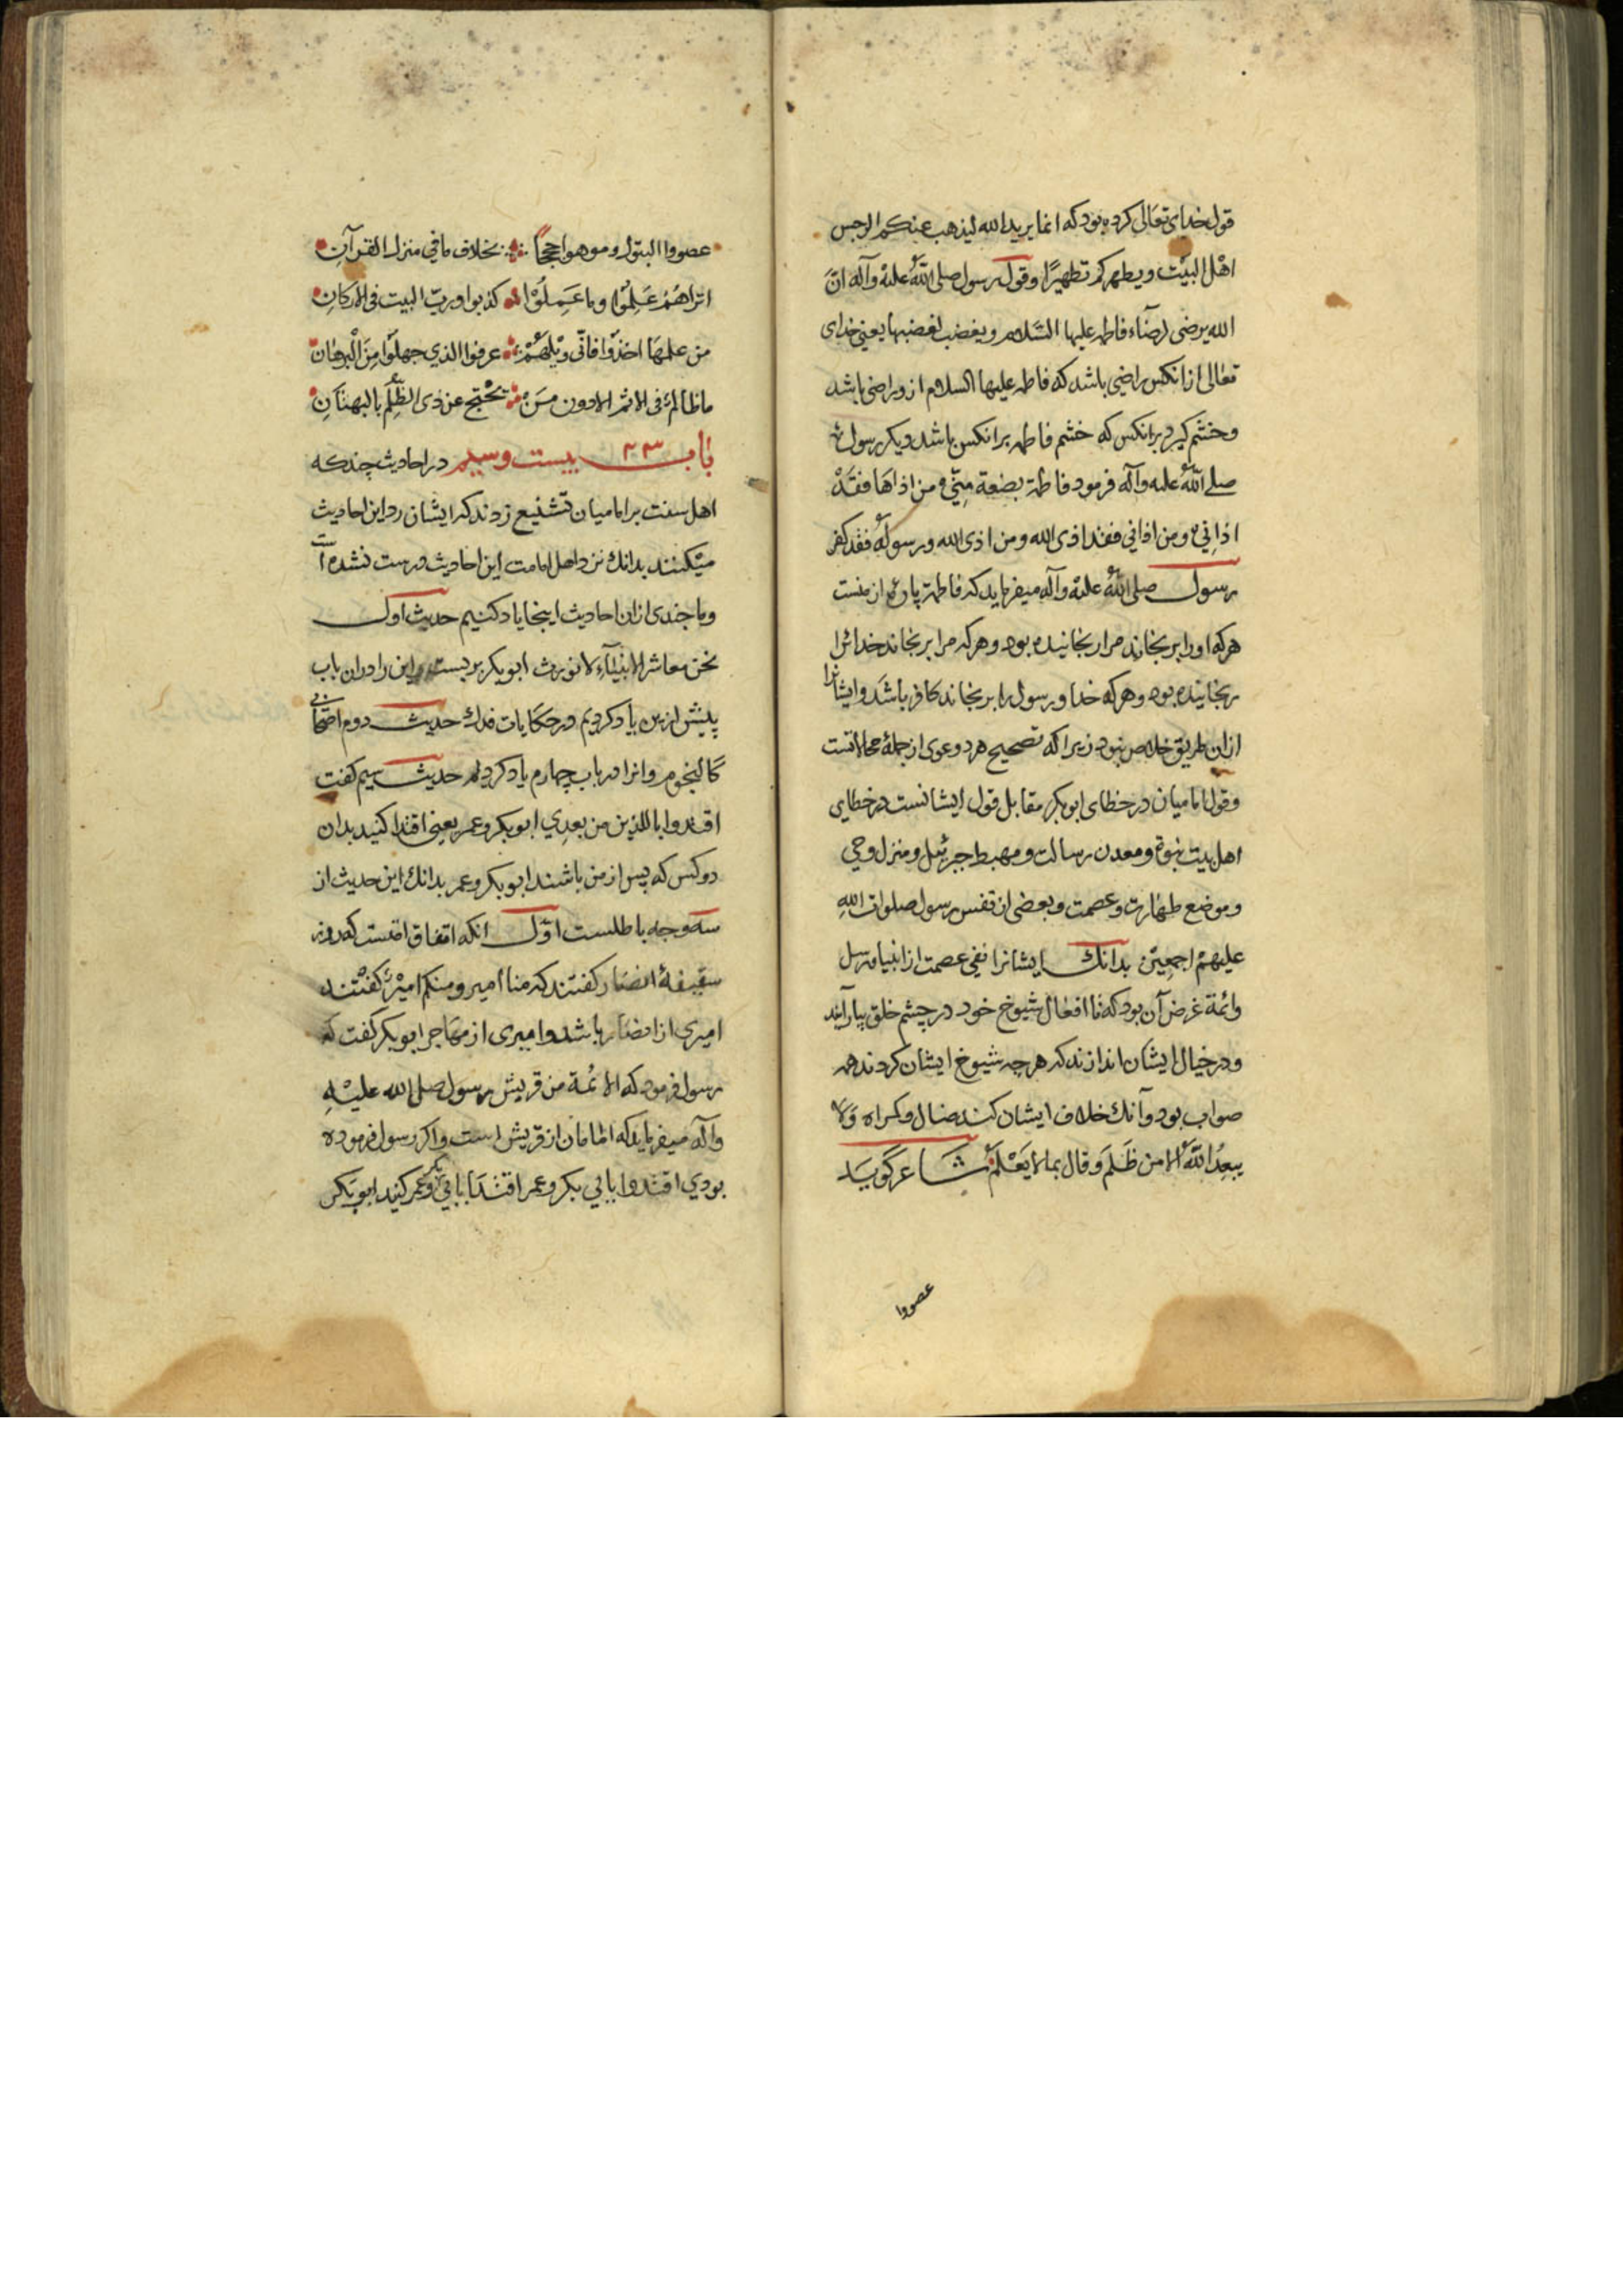 قول خدای تعالی کرده بود که انما یرید الله لیذهب عنکم الرجس
اهل البیت ویطهرکم تطهیرًا وقول رسول صلی الله علیه وآله انّ
الله یرضی لرضآء فاطمه علیها السّلام ویغضب لغضبها یعنی خدای
تعالی از انکس راضی باشد که فاطمه علیها السلام از و راضی باشد
وخشم کیرد برانکس که خشم فاطمه برانکس باشد دیکر رسول
صلی الله علیه وآله فرمود فاطمة بضعة مِنّی ومن اذاها فقدْ
اذانِی ومن اذانی فقد اذی الله ومن اذی الله ورسوله فقد کفر
رسول صلی الله علیه وآله میفرماید که فاطمة پارۀ از منست
هرکه اورا برنجاند مرا رنجانیده بود وهرکه مرا برنجاند خدایرا
رنجانیده بود وهرکه خدا ورسول را برنجاند کافر باشد وایشانرا
ازان طریق خلاص نبود زیرا که تصحیح هر دو دعوی از جملۀ محالاتست
وقول امامیان در خطای ابوبکر مقابل قول ایشانست در خطای
اهل بیت نبوة ومعدن رسالت ومهبط جبرئیل ومنزل وحی
وموضع طهارت وعصمت وبعضی از نفس رسول صلوات اللهِ
علیهم اجمعین بدانک ایشانرا نفی عصمت از انبیا ورسل
وائمة غرض آن بود که تا افعال شیوخ خود در چشم خلق بیارآیند
ودر خیال ایشان اندازند که هرچه شیوخ ایشان کردند همه
صواب بود وآنك خلاف ایشان کند ضال وکمراه وَلا
یبعدُ اللهُ الا من ظَلَمَ وقال بما لا یَعْلَم شاعر کویَد
عصوا
عصوا البتول وموهوا حججًا بخلاف ما فی منزل القرآنِ
اتراهُمُ عَلِمُوْا وما عَمِلُوْا کذبوا وربّ البیت فی الارکانِ
من علمهَا اخذوا فانّی ویْلهُمْ عرفوا الذی جهلوْا مِنَ الْبرهان
ما ظالمٌ فی الاثم الا دون مَنْ یَحْتج عن ذی الظّلم بالبهتَانِ
بٰاب ۲۳ بیست وسیم در احادیث چند که
اهل سنت بر امامیان تشنیع زدند که ایشان رد این احادیث
میکنند بدانك نزد اهل امامت این احادیث درست نشده است
وما چندی ازان احادیث اینجا یاد کنیم حدیث اول
نحن معاشر الانبیآء لا نورث ابوبکر بربست واین را دران باب
پیش ازین یاد کردیم در حکایات فدك حدیث دوم اصْحٰابی
کالنجوم وانرا در باب چهارم یاد کردیم حدیث سیم کفت
اقتدوا باللذین من بعدِی ابوبکر وعمر یعنی اقتدا کنید بدان
دو کس که پس از من باشند ابوبکر وعمر بدانك این حدیث از
سه وجه باطلست اوّل انکه اتفاق امتست که در روز
سقیفۀ انصار کفتند که منا امیر ومنکم امیْرٌ کفتند
امیری از انصار باشد وامیری از مهاجر ابوبکر کفت که
رسول فرمود که الائمة من قریش رسول صلی الله علیْهِ
وآله میفرماید که امامان از قریش است واکر رسول فرموده
بودی اقتدوا بابی بکر وعمر اقتدا بابی بکر وعمر کنید ابوبَکر